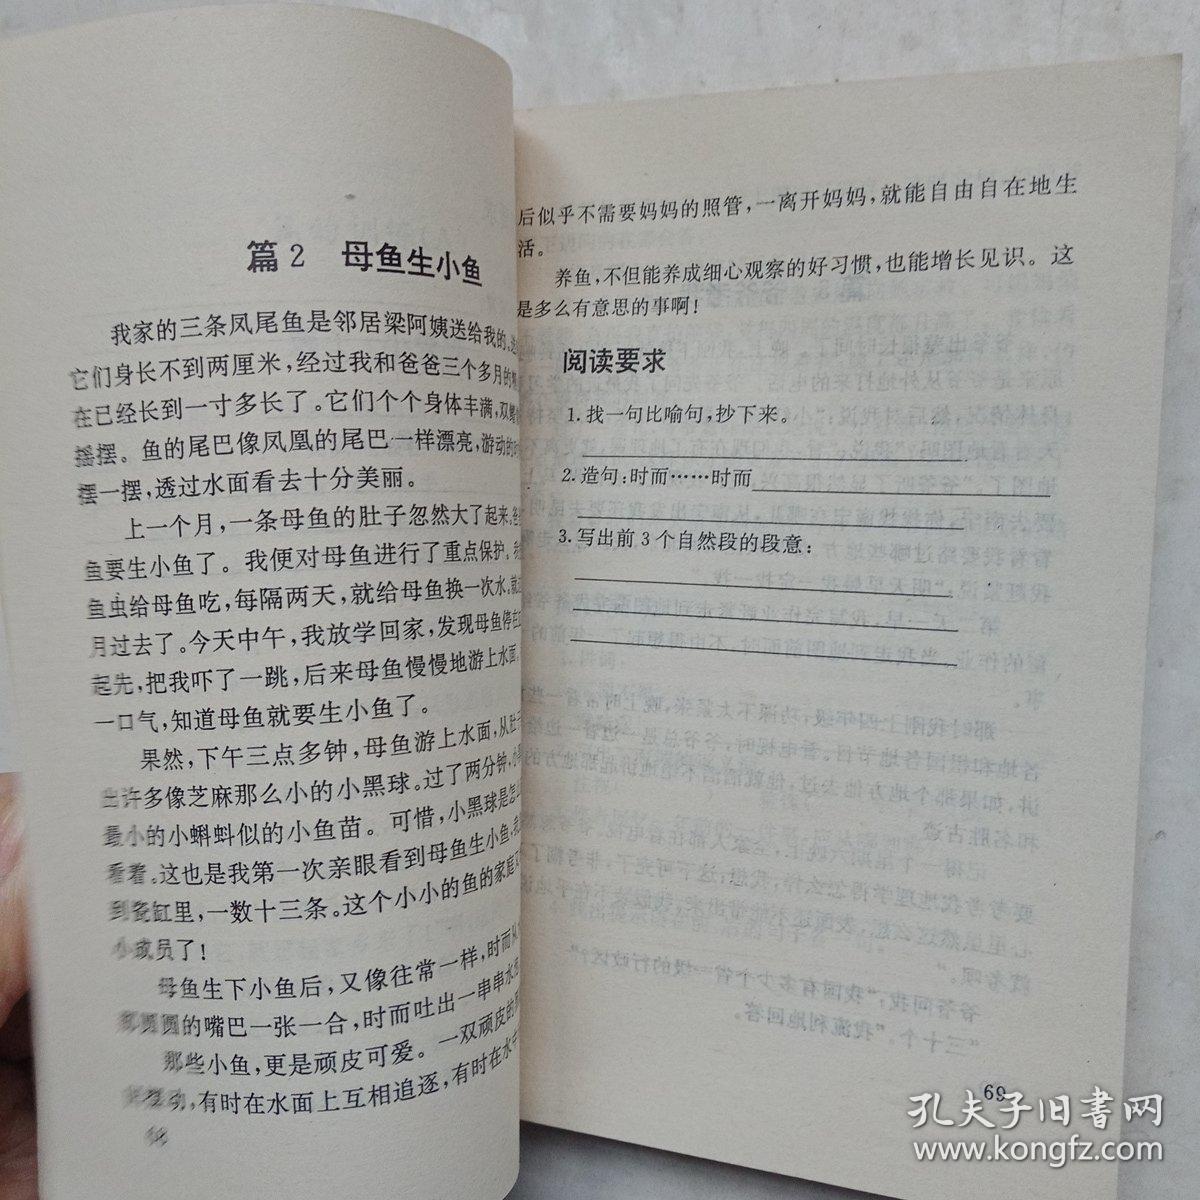 篇2 母鱼生小鱼
我家的三条凤尾鱼是邻居梁阿姨送给我的，
它们身长不到两厘米，经过我和爸爸三个多月的
在已经长到一寸多长了。它们个个身体丰满，双
摇摆。鱼的尾巴像凤凰的尾巴一样漂亮，游动的
摆一摆，透过水面看去十分美丽。
上一个月，一条母鱼的肚子忽然大了起来，
鱼要生小鱼了。我便对母鱼进行了重点保护。
鱼虫给母鱼吃，每隔两天，就给母鱼换一次水。
月过去了。今天中午，我放学回家，发现母鱼停在
起先，把我吓了一跳，后来母鱼慢慢地游上水面，
一口气，知道母鱼就要生小鱼了。
果然，下午三点多钟，母鱼游上水面，从肚
出许多像芝麻那么小的小黑球。过了两分钟，
最小的小蝌蚪似的小鱼苗。可惜，小黑球是怎么
看着。这也是我第一次亲眼看到母鱼生小鱼，
到瓷缸里，一数十三条。这个小小的鱼的家庭
小成员了！
母鱼生下小鱼后，又像往常一样，时而从
圆圆的嘴巴一张一合，时而吐出一串串水
那些小鱼，更是顽皮可爱。一双顽皮的
动，有时在水面上互相追逐，有时在水
68
后似乎不需要妈妈的照管，一离开妈妈，就能自由自在地生
活。
养鱼，不但能养成细心观察的好习惯，也能增长见识。这
是多么有意思的事啊！
阅读要求
1. 找一句比喻句，抄下来。
2. 造句：时而……时而
3. 写出前3个自然段的段意：
69
孔夫子旧书网
www.kongfz.com